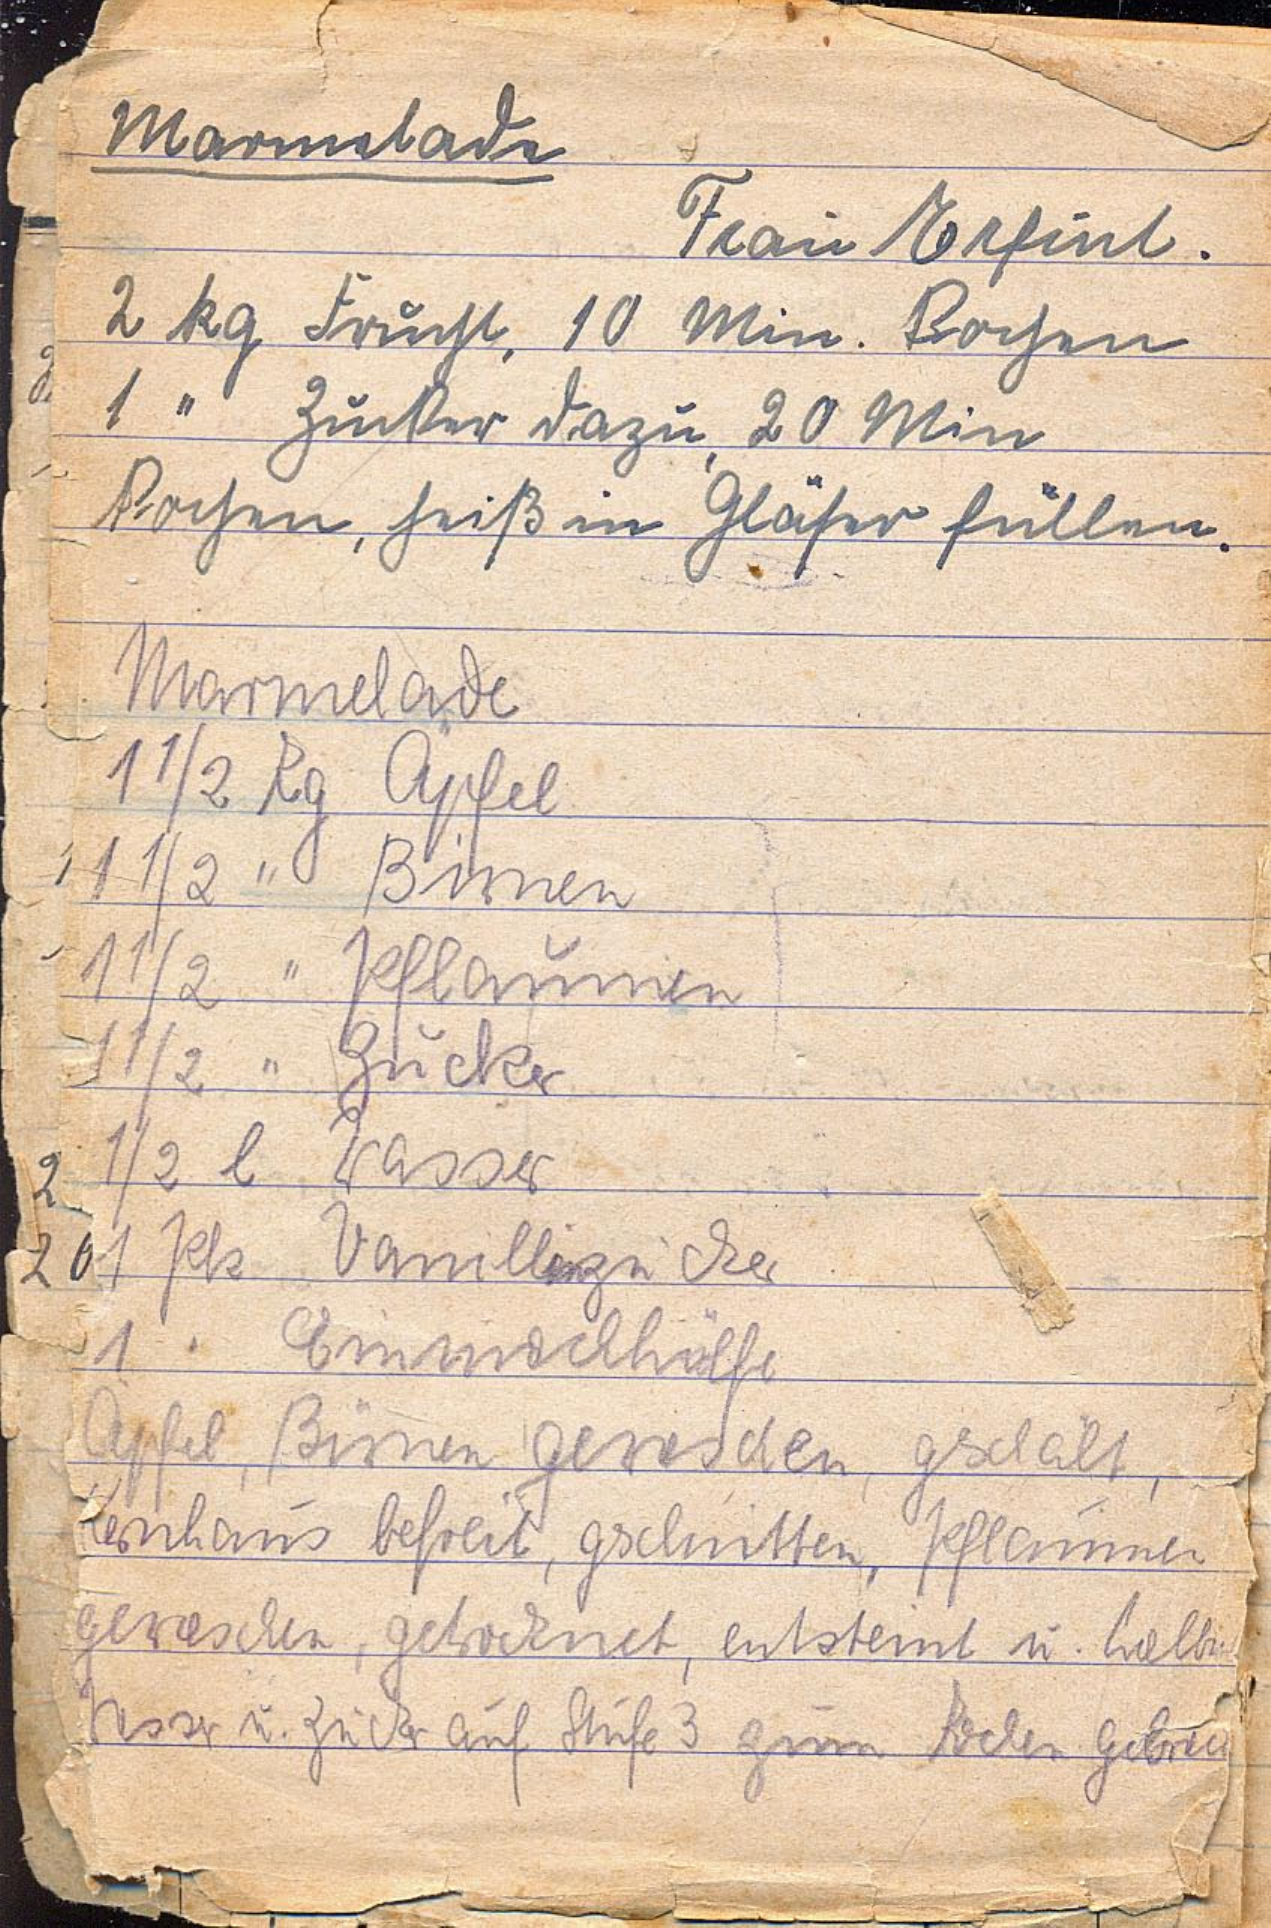 Marmelade
Frau
2 kg Frucht, 10 Min. Kochen
1 " Zucker dazu, 20 Min
Kochen, heiß in Gläser füllen.
Marmelade
1 1/2 Kg Äpfel
1 1/2 " Birnen
1 1/2 " Pflaumen
1 1/2 " Zucker
1/2 l Wasser
1 Pk Vanillinzucker
1 " Einmachhülfe
Äpfel, Birnen gewaschen, gschält,
Kernhaus befreit, gschnitten, Pflaumen
gewaschen, getrocknet, entsteint u.
Wasser u. Zucker auf Stufe 3 zum Kochen
2
20